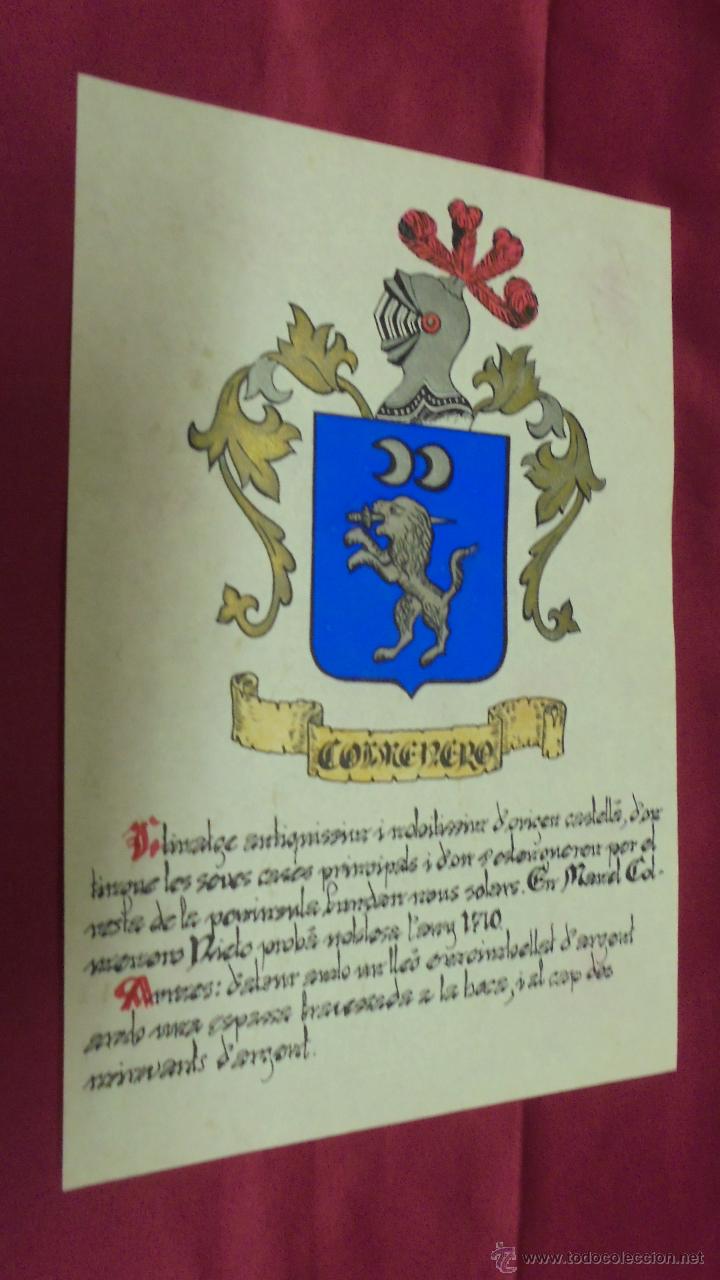 COLMENERO
Llinatge antiquissim i nobilissim d'origen castellà, d'on
tingué les seves cases principals i d'on s'estengueren per el
resta de la península fundant nous solars. En Manel Col-
menero Nieto probà noblesa l'any 1710.
Armes: d'atzur amb un lleó d'argent
amb una espassa travessada a la boca, i al cap dos
minvants d'argent.
www.todocoleccion.net